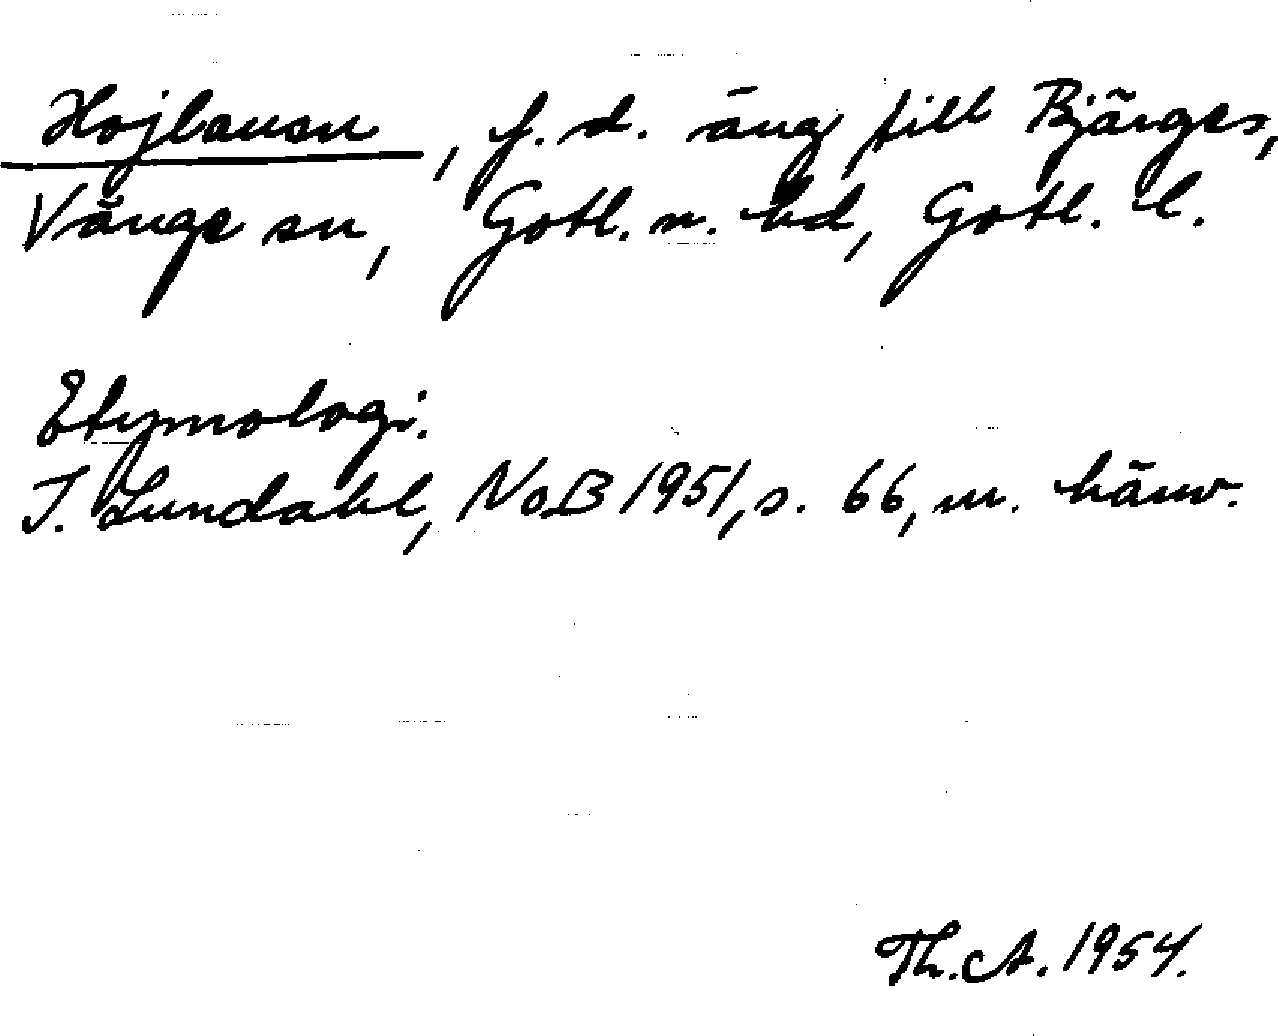 Hojlausu, f. d. äng till Bjärges,
Vänge sn, Gotl. n. hd, Gotl. l.
Etymologi.
I. Lundahl, NoB 1951, s. 66, m. hänv.
Th. A. 1954.